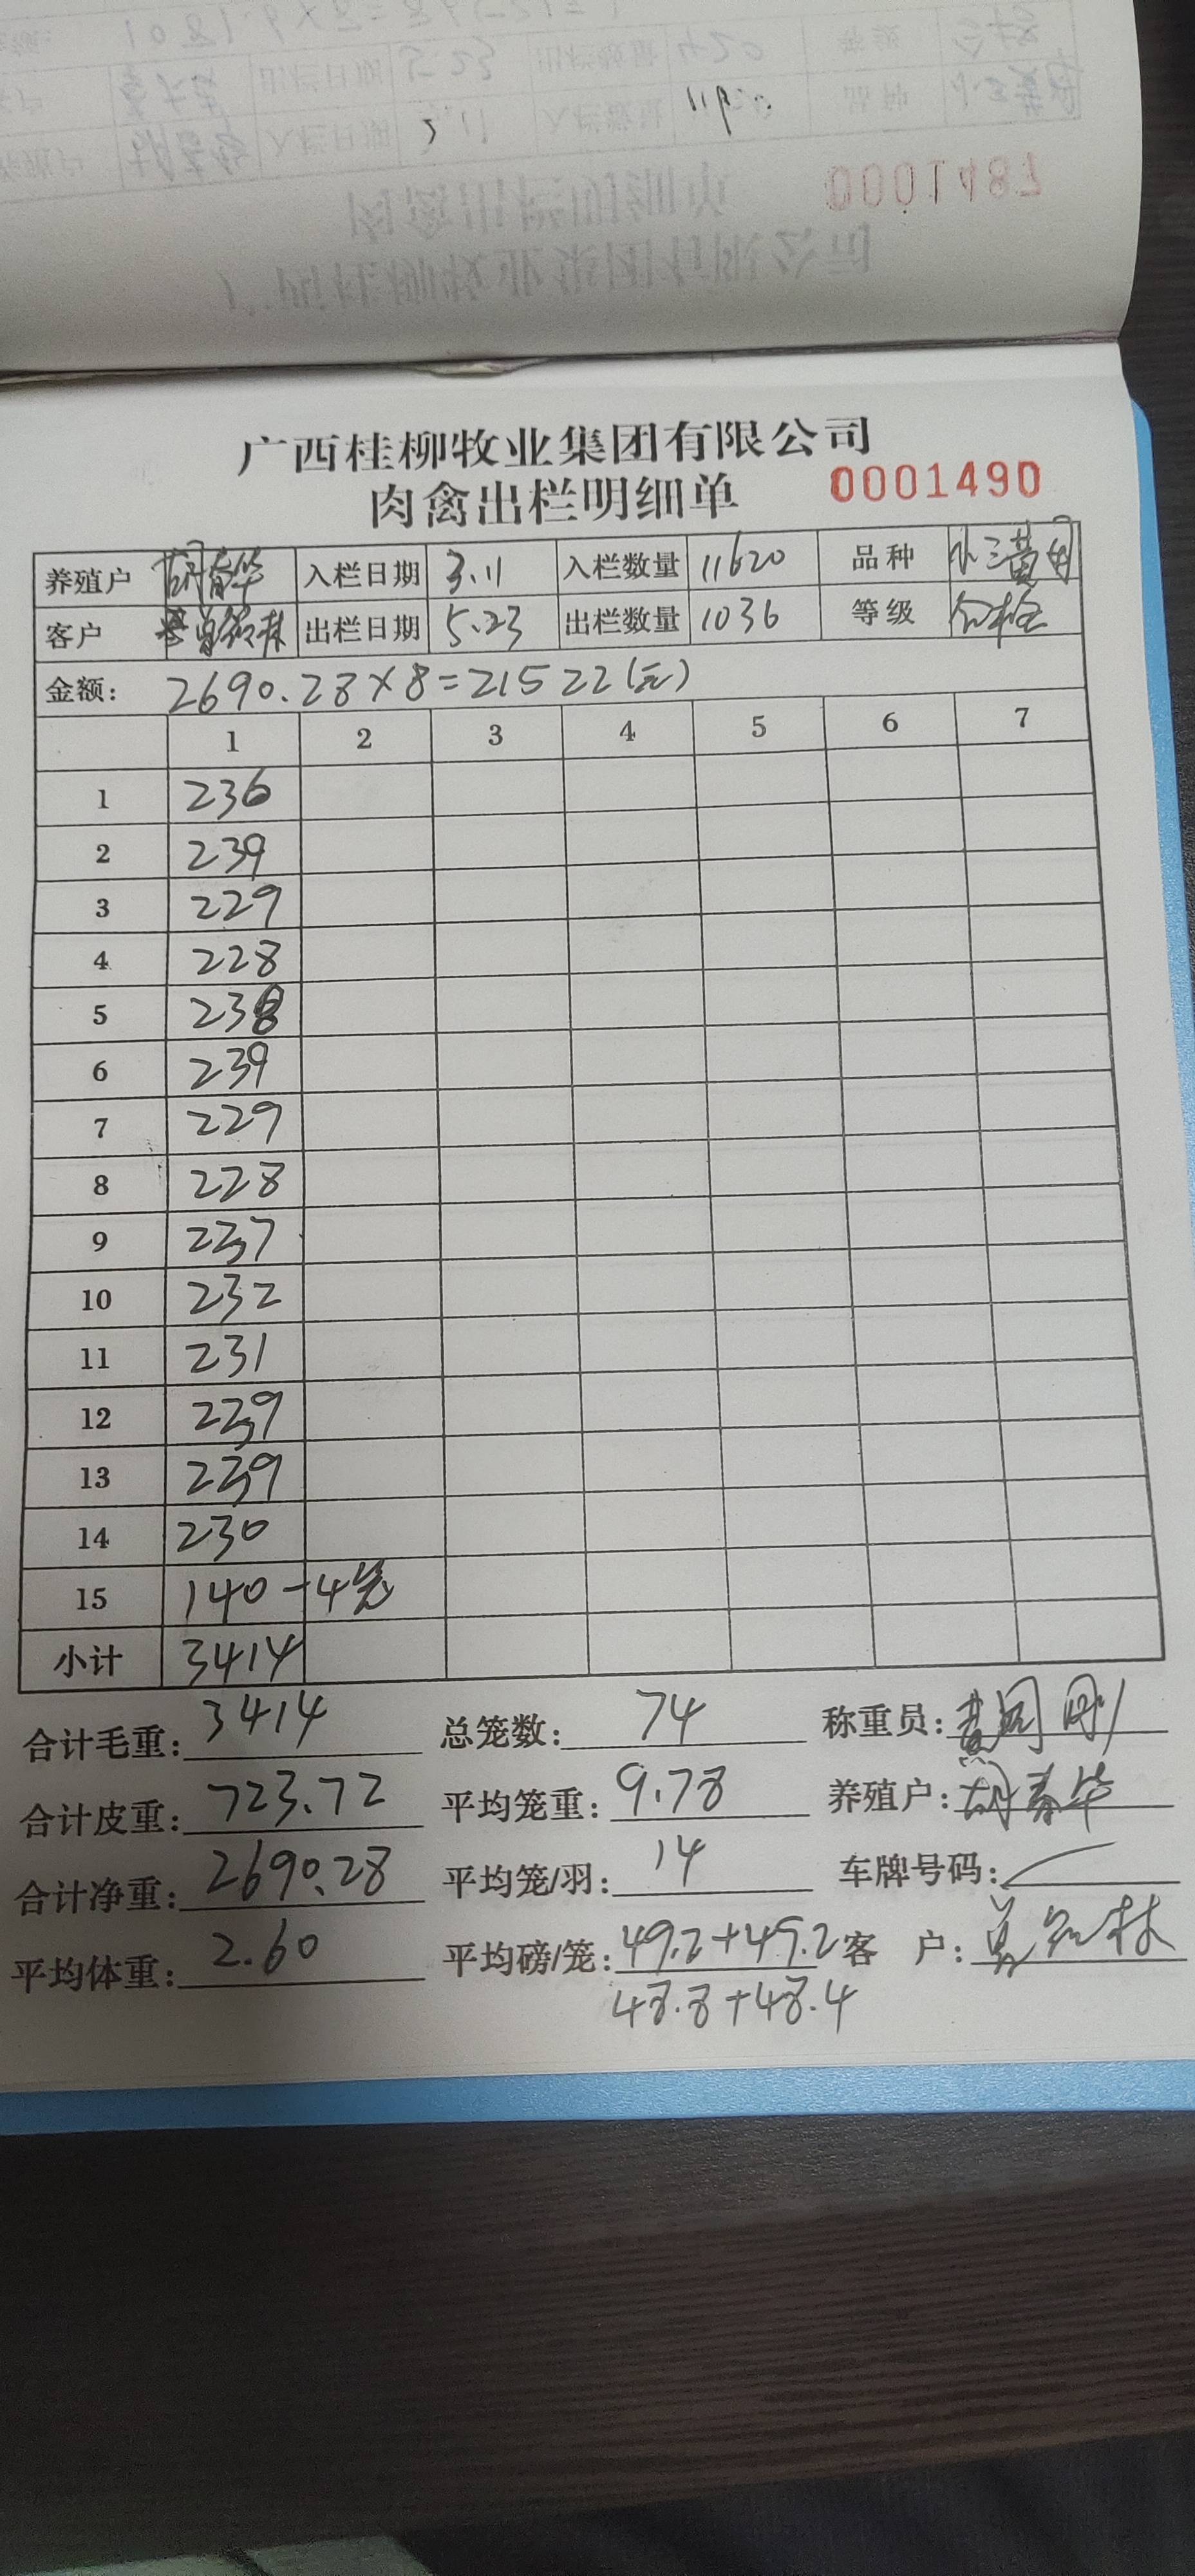 0001487
广西桂柳牧业集团有限公司
肉禽出栏明细单 0001490
养殖户 胡春华 入栏日期 3.11 入栏数量 11620 品种 小三黄
客户 林 出栏日期 5.23 出栏数量 1036 等级 合格
金额: 2690.28×8=21522(元)
1 2 3 4 5 6 7
1 236
2 239
3 229
4 228
5 238
6 239
7 229
8 228
9 237
10 232
11 231
12 239
13 239
14 230
15 140-4笼
小计 3414
合计毛重: 3414 总笼数: 74 称重员: 黄国刚
合计皮重: 723.72 平均笼重: 9.78 养殖户: 胡春华
合计净重: 2690.28 平均笼/羽: 14 车牌号码:
平均体重: 2.60 平均磅/笼: 49.2+49.2 客 户: 林
48.8+48.4